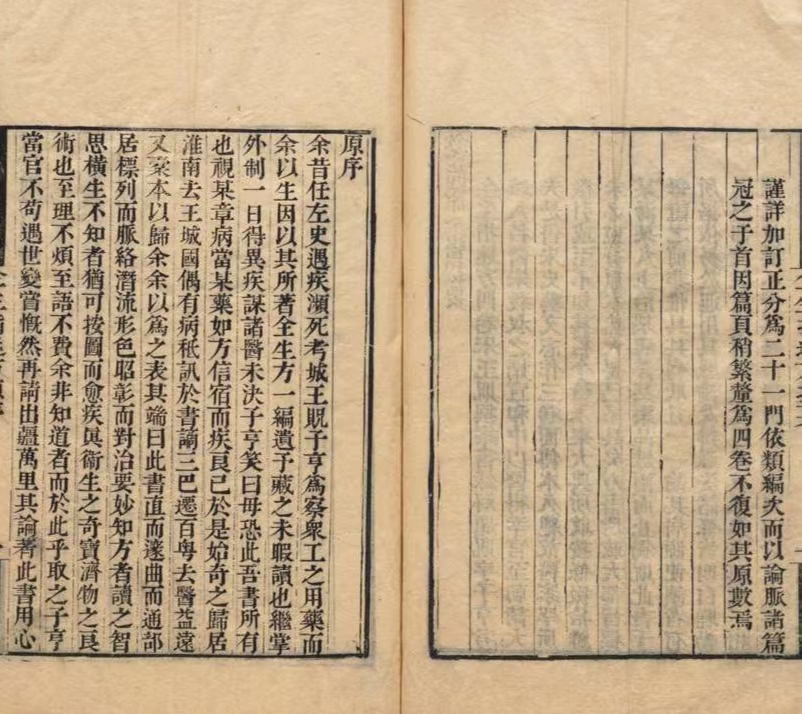 謹詳加訂正分爲二十一門依類編次而以論脈諸篇
冠之于首因篇頁稍繁釐爲四卷不復如其原數焉
原序
余昔任左史遇疾瀕死考城王貺子亨爲察衆工之用藥而
余以生因以其所著全生方一編遺予藏之未暇讀也繼掌
外制一日得異疾謀諸醫未決子亨笑曰毋恐此吾書所有
也視某章病當某藥如方信宿而疾良已於是始奇之歸居
淮南去王城國偶有病秪訊於書謫三巴遷百粵去醫益遠
又槖本以歸余余以爲之表其端曰此書直而邃曲而通部
居標列而脈絡潛流形色昭彰而對治要妙知方者讀之智
思橫生不知者猶可按圖而愈疾眞衞生之奇寶濟物之良
術也至理不煩至語不費余非知道者而於此乎取之子亨
當官不苟遇世變嘗慨然再請出疆萬里其論著此書用心